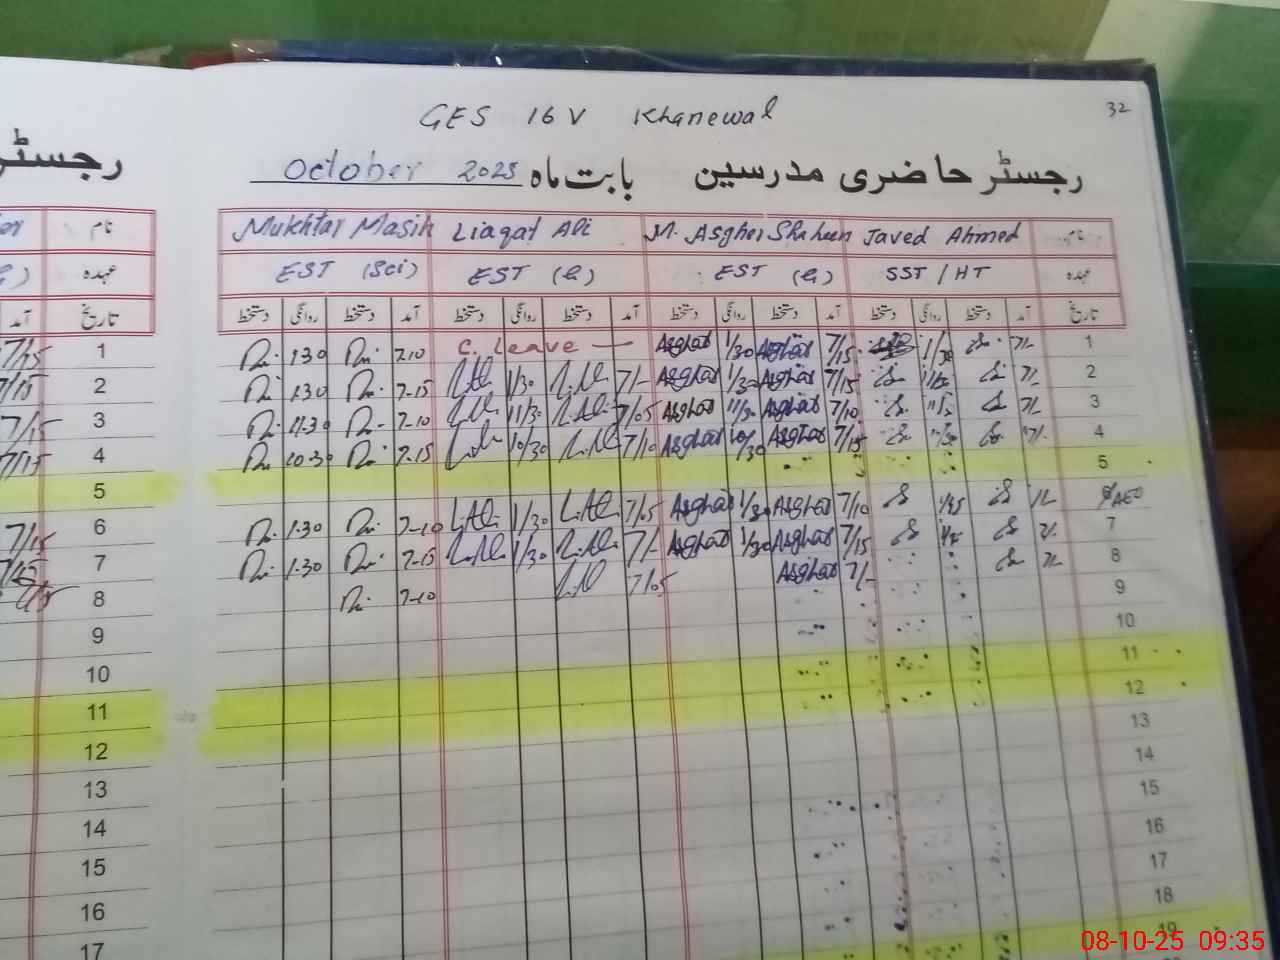 32
GES 16 V Khanewal
رجسٹر حاضری مدرسین بابت ماہ October 2025
نام Javed Ahmed M. Asgher Shaheen Liaqat Ali Mukhtar Masih
عہدہ SST / HT EST (G) EST (G) EST (Sci)
تاریخ آمد دستخط روانگی دستخط آمد دستخط روانگی دستخط آمد دستخط روانگی دستخط آمد دستخط روانگی دستخط
1 7/- 1/30 7/15 Asghar 1/30 Asghar C. Leave — 7.10 1.30
2 7/- 7/15 Asghar 1/30 Asghar 7/- 1/30 7-15 1.30
3 7/- 7/10 Asghar 11/30 Asghar 7/05 11/30 7-10 11.30
4 7/- 7/15 Asghar 10/30 Asghar 7/10 10/30 7-15 10.30
5
6/AEO 7/- 7/10 Asghar 1/30 Asghar 7/05 L.Ali 1/30 L.Ali 7-10 1.30
7 7/- 7/15 Asghar 1/30 Asghar 7/- 1/30 7-15 1.30
8 7/- 7/- Asghar 7/05 7-10
9
10
11
12
13
14
15
16
17
18
19
رجسٹر
نام
عہدہ
تاریخ آمد
1 7/15
2 7/15
3 7/15
4 7/15
5
6 7/15
7 7/15
8
9
10
11
12
13
14
15
16
17
08-10-25 09:35